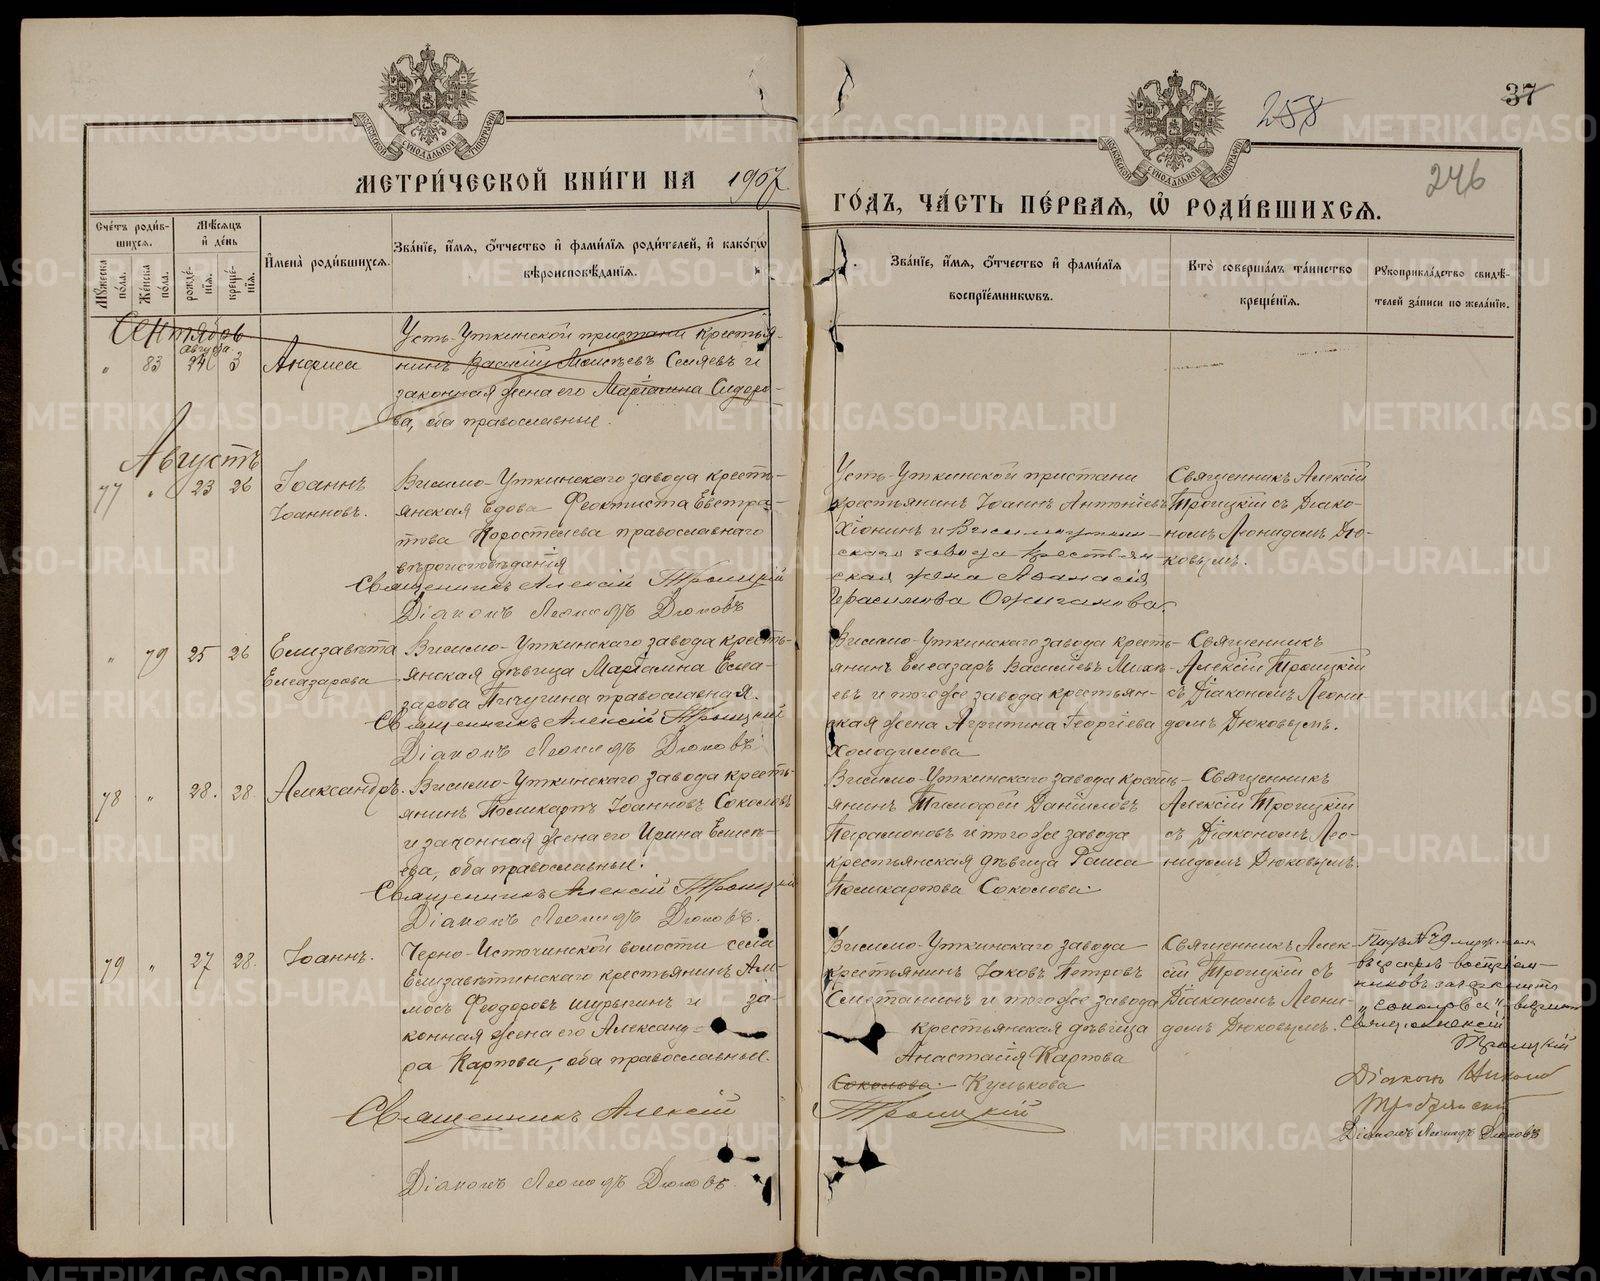 258
37
246
МЕТРИ́ЧЕСКОЙ КНИ́ГИ НА 1907
ГО́ДЪ, ЧА́СТЬ ПЕ́РВАЯ, Ѽ РОДИ́ВШИХСѦ.
Сче́тъ роди́в-
шихся.
Мѣ́сяцъ
и҆ де́нь
И҆мена̀ роди́вшихсѧ.
Зва́нїе, и҆́мѧ, ѻ҆́тчество и҆ фами́лїѧ роди́телей, и҆ како́гѡ
вѣроисповѣ́данїѧ.
Мꙋ́жеска
по́ла.
Же́нска
по́ла.
рожде́-
нїѧ.
креще́-
нїѧ.
Зва́нїе, и҆́мѧ, ѻ҆́тчество и҆ фами́лїѧ
воспрїе́мникѡвъ.
Кто̀ соверша́лъ та́инство
креще́нїѧ.
Рꙋкоприкла́дство свидѣ́-
телей за́писи по жела́нїю.
Сентябрь
Августа
" 83 24 3 Анфиса
Усть-Уткинской пристани крестья-
нинъ Василій Моисѣевъ Селяевъ и
законная жена его Маріамна Сидоро-
ва, оба православные.
Августъ
77 " 23 26 Іоаннъ
Іоанновъ.
Висимо-Уткинскаго завода кресть-
янская вдова Феоктиста Евстра-
това Коростелева православнаго
вѣроисповѣданія
Священникъ Алексій Троицкій
Діаконъ Леонидъ Дюковъ
Усть-Уткинской пристани
крестьянинъ Іоаннъ Антоніевъ
Хіонинъ и Висимоуткин-
скаго завода крестьян-
ская жена Аѳанасія
Герасимова Ожиганова.
Священникъ Алексій
Троицкій съ Діако-
номъ Леонидомъ Дю-
ковымъ.
" 79 25 26 Елизавѣта
Елеазарова
Висимо-Уткинскаго завода кресть-
янская дѣвица Маріамна Елеа-
зарова Пичугина православная.
Священникъ Алексій Троицкій
Діаконъ Леонидъ Дюковъ
Висимо-Уткинскаго завода кресть-
янинъ Елеазаръ Василіевъ Михѣ-
евъ и того же завода крестьян-
ская жена Агрипина Георгіева
Холодилова
Священникъ
Алексій Троицкій
съ Діакономъ Леони-
домъ Дюковымъ.
78 " 28. 28. Александръ.
Висимо-Уткинскаго завода кресть-
янинъ Поликарпъ Іоанновъ Соколовъ
и законная жена его Ирина Елисѣ-
ева, оба православные.
Священникъ Алексій Троицкій
Діаконъ Леонидъ Дюковъ.
Висимо-Уткинскаго завода кресть-
янинъ Тимофей Даніиловъ
Парамоновъ и того же завода
крестьянская дѣвица Раиса
Поликарпова Соколова.
Священникъ
Алексій Троицкій
съ Діакономъ Лео-
нидомъ Дюковымъ.
79 " 27 28. Іоаннъ.
Черно-Источинской волости села
Елизавѣтинскаго крестьянинъ Ам-
мосъ Феодоровъ Шурыгинъ и за-
конная жена его Александ-
ра Карпова, оба православные.
Священникъ Алексій Троицкій
Діаконъ Леонидъ Дюковъ.
Висимо-Уткинскаго завода
крестьянинъ Іаковъ Петровъ
Сметанинъ и того же завода
крестьянская дѣвица
Анастасія Карпова
Соколова. Кулькова
Священникъ Алек-
сій Троицкій съ
Діакономъ Леони-
домъ Дюковымъ.
въ графѣ воспріем-
никовъ зачеркнуто
"Соколова"
Свящ. Алексій
Троицкій
Діаконъ
Діаконъ Леонидъ Дюковъ